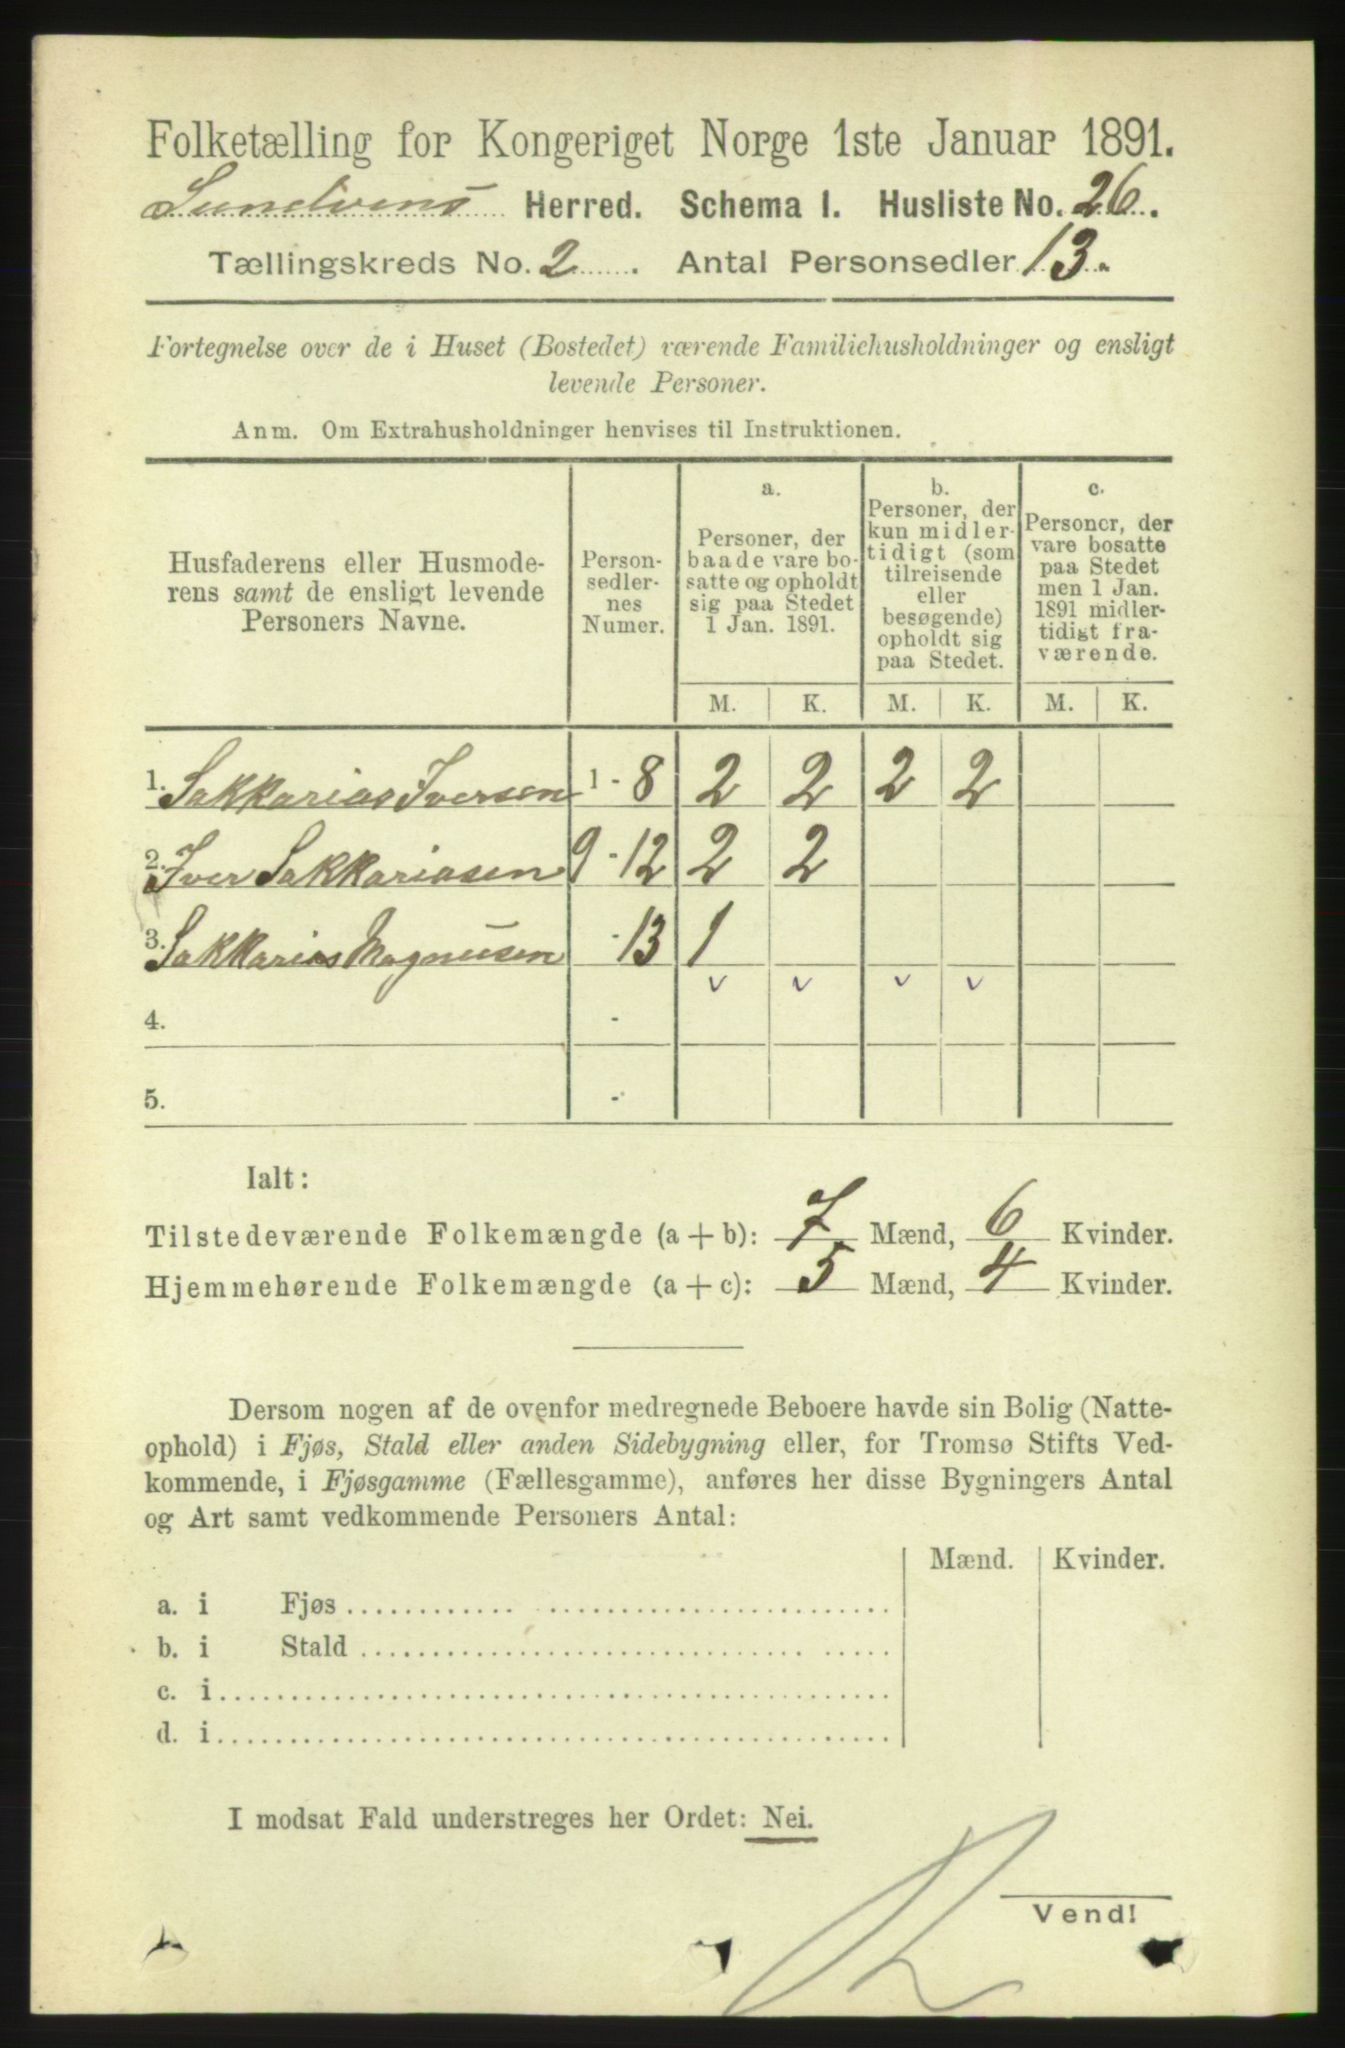 Folketælling for Kongeriget Norge 1ste Januar 1891.
Sundvens Herred. Schema I. Husliste No. 26.
Tællingskreds No. 2. Antal Personsedler 13.
Fortegnelse over de i Huset (Bostedet) værende Familiehusholdninger og ensligt
levende Personer.
Anm. Om Extrahusholdninger henvises til Instruktionen.
Husfaderens eller Husmode-
rens samt de ensligt levende
Personers Navne.
Person-
sedler-
nes
Numer.
a.
Personer, der
baade vare bo-
satte og opholdt
sig paa Stedet
1 Jan. 1891.
b.
Personer, der
kun midler-
tidigt (som
tilreisende
eller
besøgende)
opholdt sig
paa Stedet.
c.
Personer, der
vare bosatte
paa Stedet
men 1 Jan.
1891 midler-
tidigt fra-
værende.
M. K. M. K. M. K.
1. Sakkarias Iversen 1 - 8 2 2 2 2
2. Iver Sakkariasen 9 - 12 2 2
3. Sakkarias Magnusen - 13 1
v v v v
4. -
5. -
Ialt:
Tilstedeværende Folkemængde (a + b): 7 Mænd, 6 Kvinder.
Hjemmehørende Folkemængde (a + c): 5 Mænd, 4 Kvinder.
Dersom nogen af de ovenfor medregnede Beboere havde sin Bolig (Natte-
ophold) i Fjøs, Stald eller anden Sidebygning eller, for Tromsø Stifts Ved-
kommende, i Fjøsgamme (Fællesgamme), anføres her disse Bygningers Antal
og Art samt vedkommende Personers Antal:
Mænd. Kvinder.
a. i Fjøs
b. i Stald
c. i
d. i
I modsat Fald understreges her Ordet: Nei.
Vend!